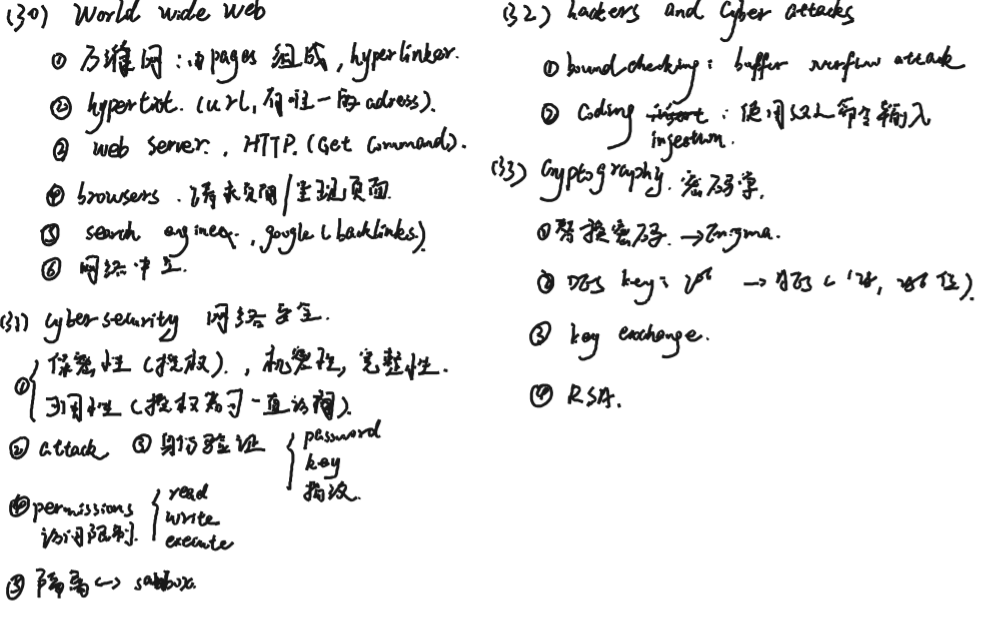 (30) World wide web
① 万维网：由pages 组成，hyperlinker.
② hypertxt. (url, 有唯一的adress).
② web server., HTTP. (Get Command).
④ browsers. 请求页面/呈现页面
⑤ search engineer., google (backlinks)
⑥ 网络中立.
(31) cybersecurity 网络安全.
① 保密性 (授权)., 机密性, 完整性.
可用性 (授权者可一直访问).
② attack ③ 身份验证 password
key
指纹.
④ permissions read
访问限制. write
execute
⑤ 隔离 <-> sandbox.
(32) hackers and Cyber attacks
① bound checking: buffer overflow attack
② Coding insert : 使用 命令输入
ingestion.
(33) Cryptography. 密码学.
① 替换密码. →Enigma.
② DES key: 2^56 → AES (128, 256 位).
③ key exchange.
④ RSA.